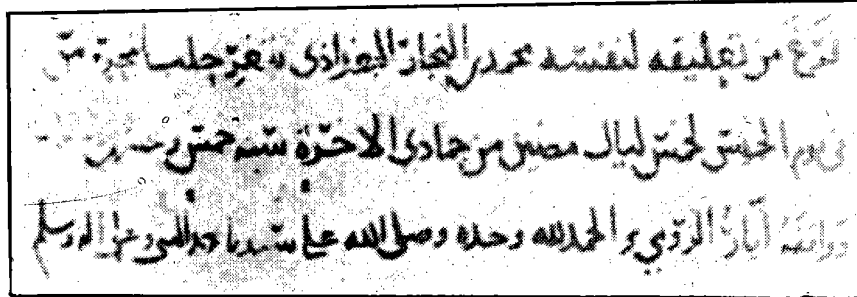 فرغ من تعليقه لنفسه محمد بن النجار البغدادي بثغر حلب
في يوم الخميس لخمس ليال مضين من جمادى الاخرة سنة خمس و
آيار الرومي و الحمد لله وحده وصلى الله على سيدنا محمد النبي وعلى اله وسلم